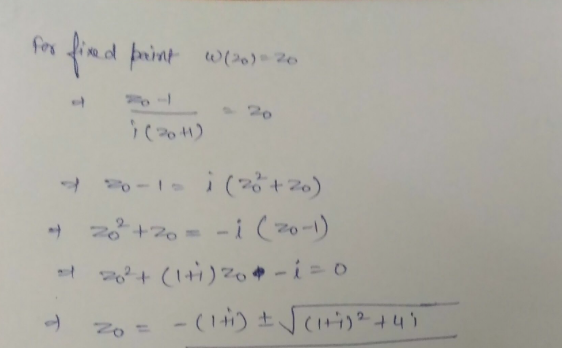 For fixed point w(z0) = z0
⇒ z0 - 1 / i(z0+1) = z0
⇒ z0 - 1 = i (z0² + z0)
⇒ z0² + z0 = -i (z0-1)
⇒ z0² + (1+i) z0 - i = 0
⇒ z0 = -(1+i) ± √(1+i)² + 4i